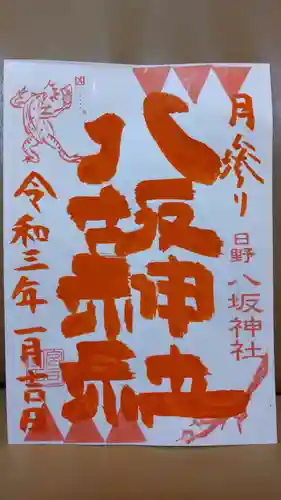 月参り
日野 八坂神社
八坂神社
令和三年一月吉日